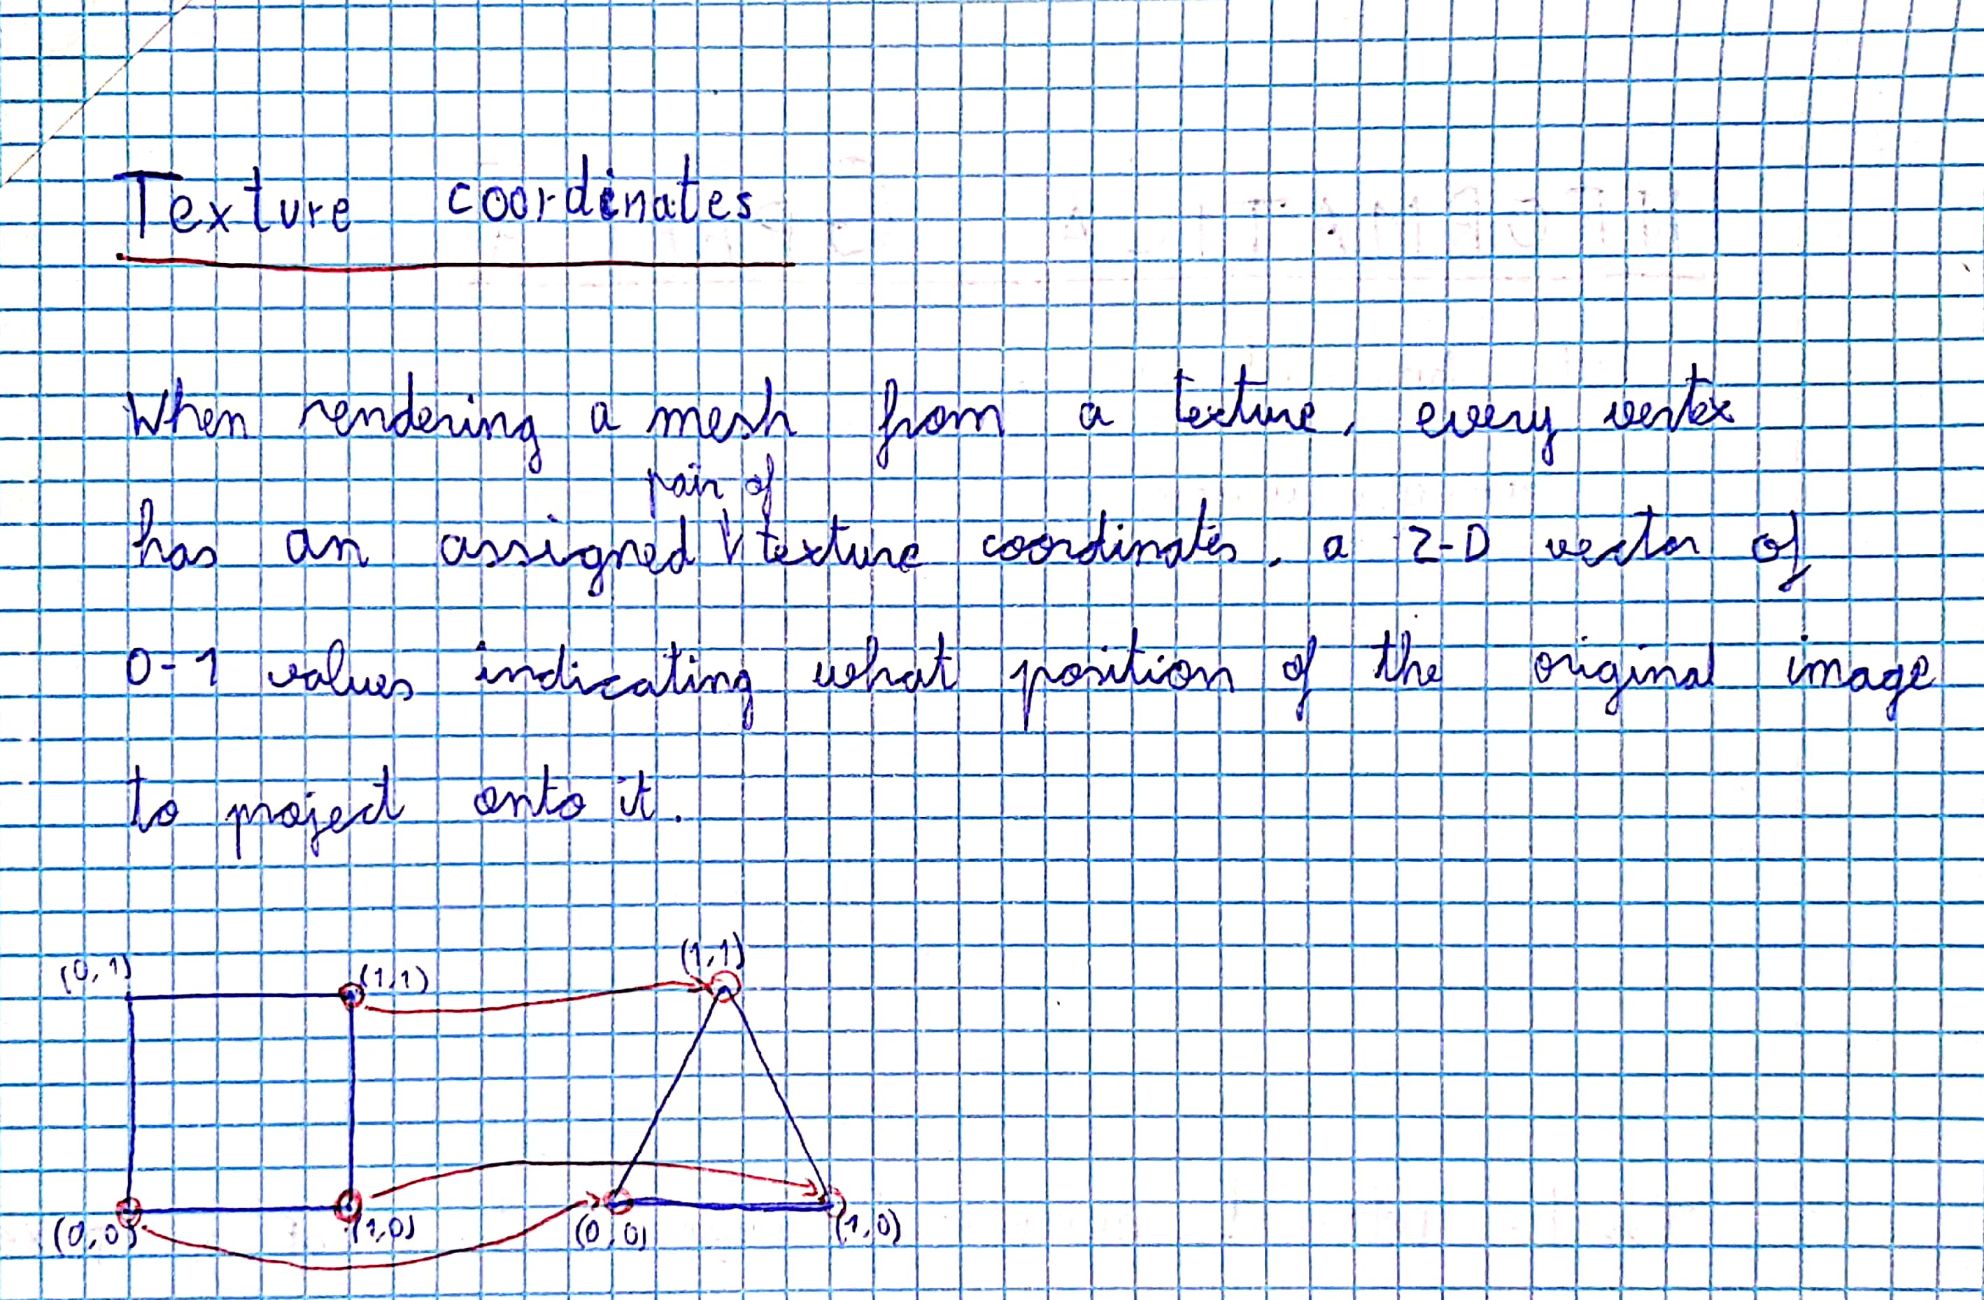 Texture coordinates
When rendering a mesh from a texture, every vertex
pair of
has an assigned texture coordinates, a 2-D vector of
0-1 values indicating what position of the original image
to project onto it.
(0,1) (1,1) (1,1)
(0,0) (1,0) (0,0) (1,0)